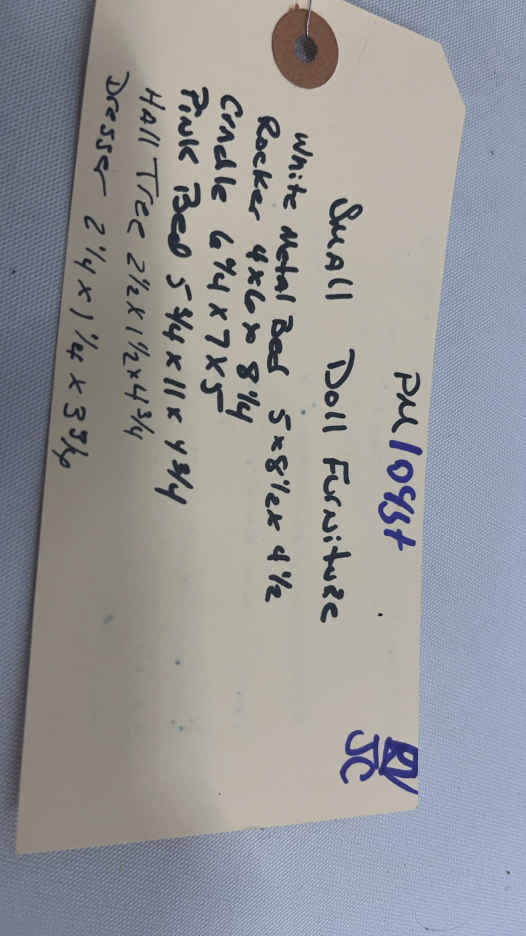 Small Doll Furniture
White Metal Bed 5x8½x 4½
Rocker 4x6x 8¼
Cradle 6¼ x 7 x 5
Pink Bed 5¾ x 11 x 4¾
Hall Tree 2½ x 1½ x 4¾
Dresser 2¼ x 1¼ x
JC